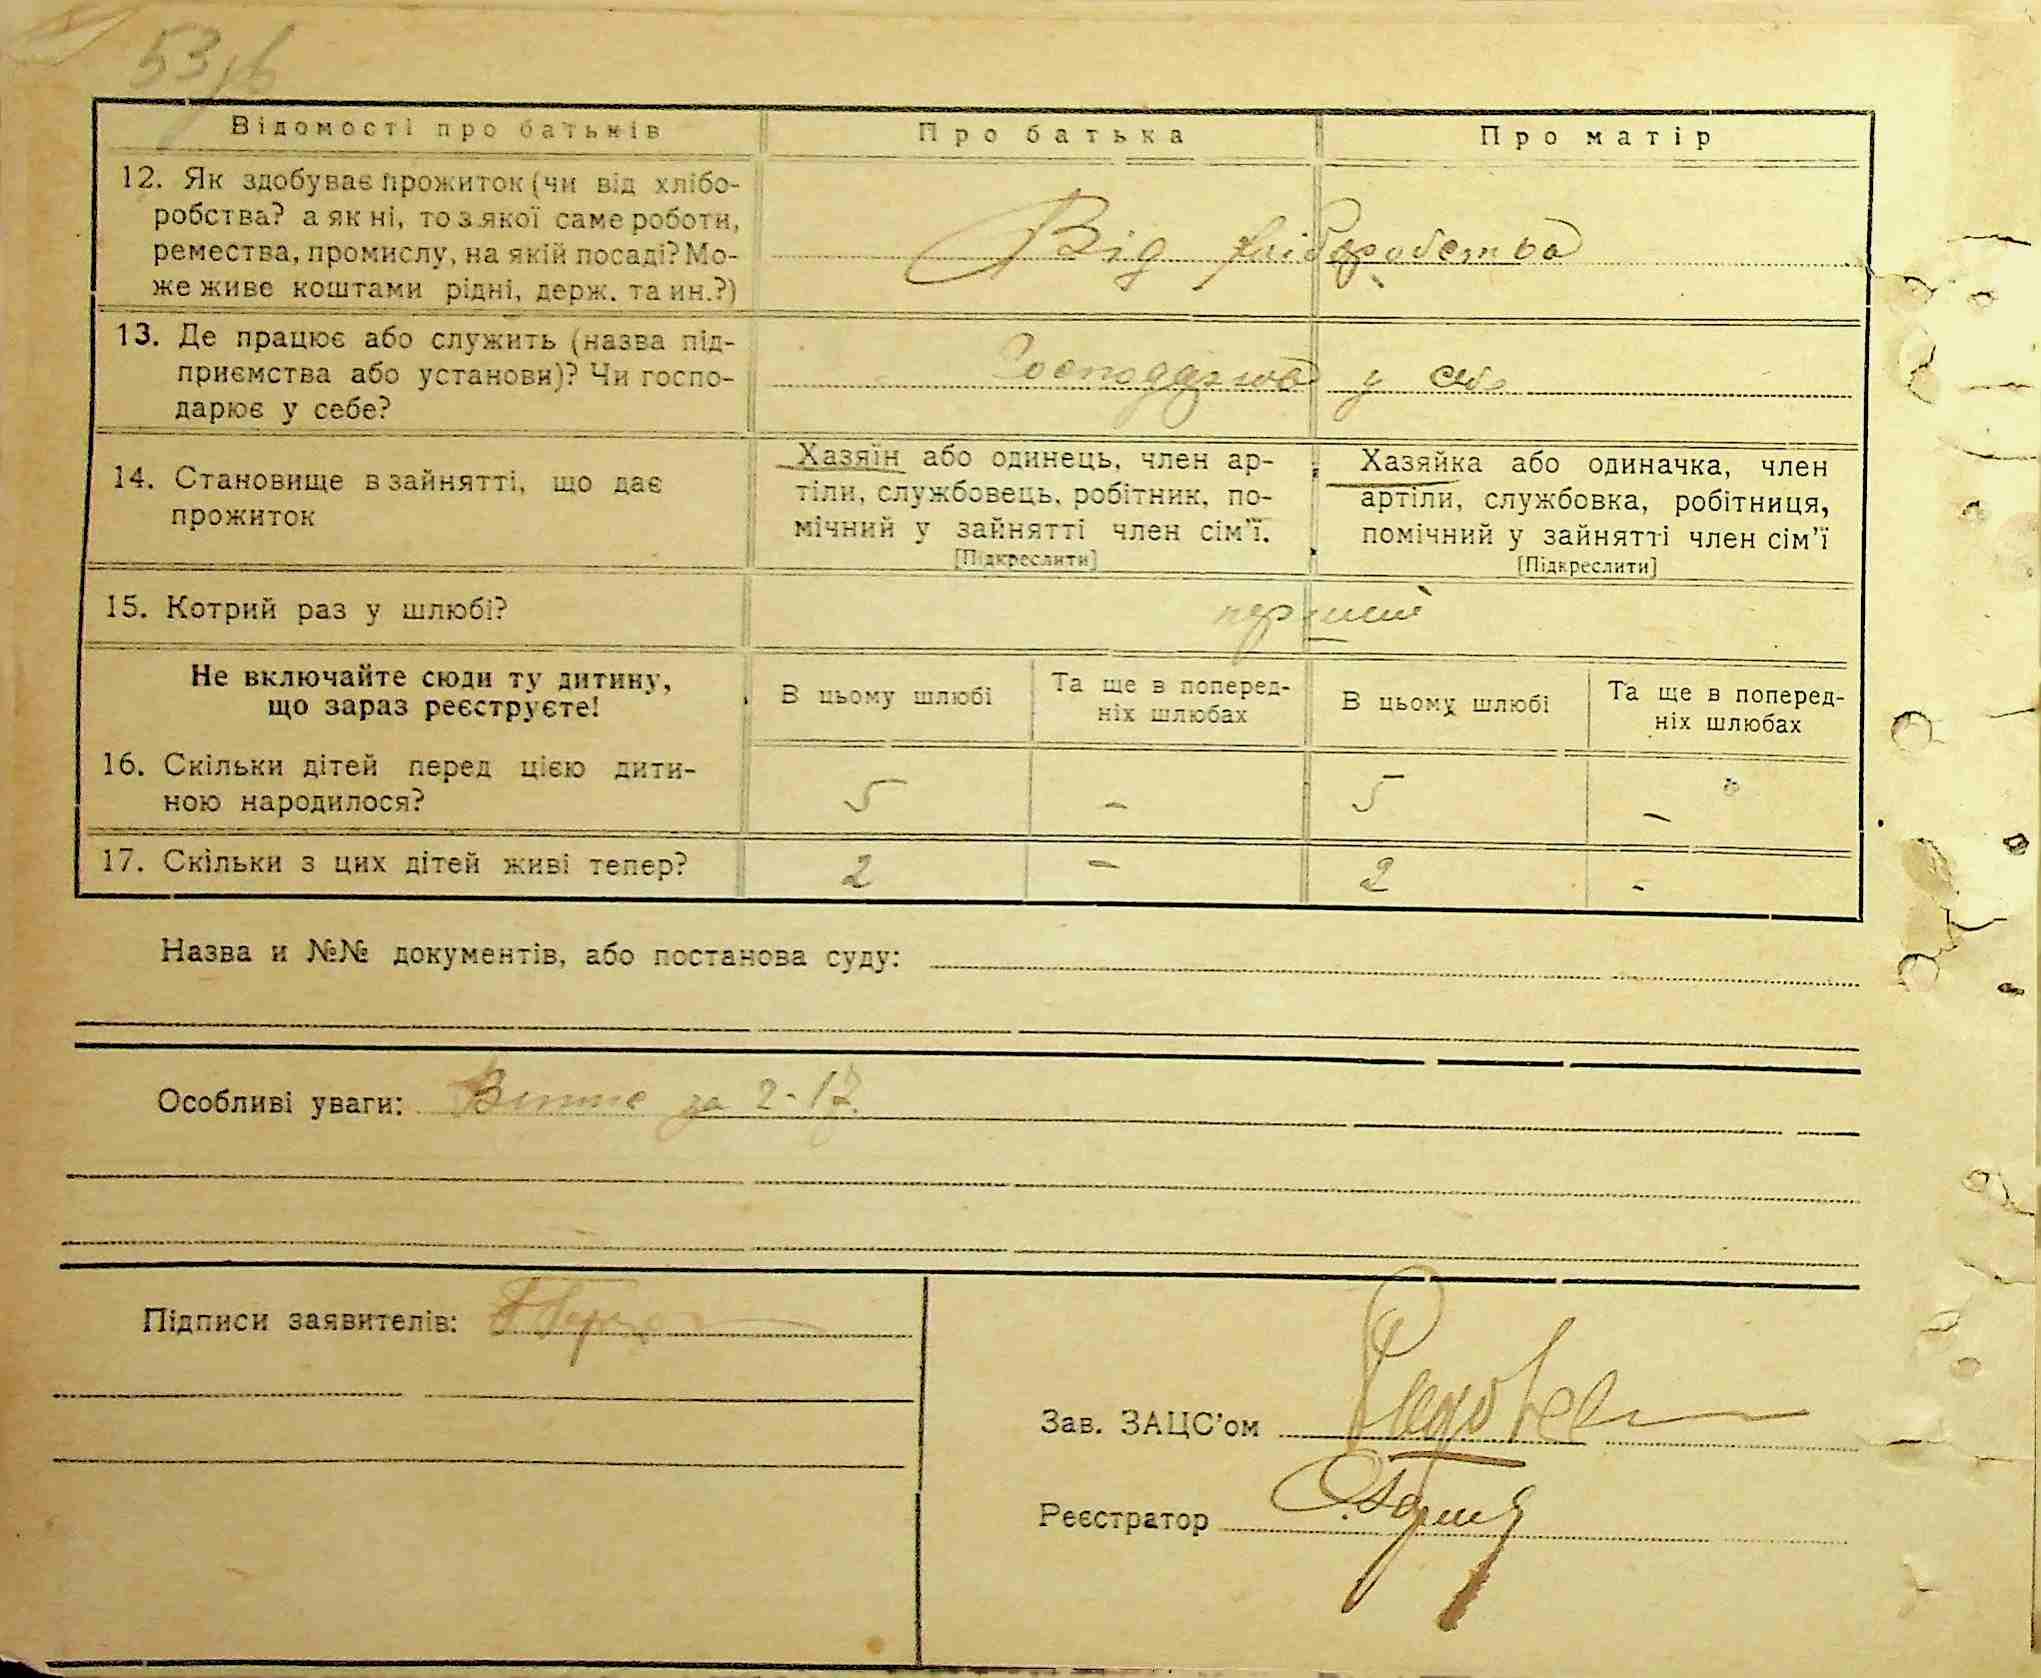 53
Відомості про батьків
Про батька
Про матір
12. Як здобуває прожиток (чи від хлібо-
робства? а як ні, то з якої саме роботи,
ремества, промислу, на якій посаді? Мо-
же живе коштами рідні, держ. та ин.?)
Від хліборобства
13. Де працює або служить (назва під-
приємства або установи)? Чи госпо-
дарює у себе?
у себе
14. Становище в зайнятті, що дає
прожиток
Хазяїн або одинець, член ар-
тіли, службовець, робітник, по-
мічний у зайнятті член сім'ї.
[Підкреслити]
Хазяйка або одиначка, член
артіли, службовка, робітниця,
помічний у зайнятті член сім'ї
[Підкреслити]
15. Котрий раз у шлюбі?
перший
Не включайте сюди ту дитину,
що зараз реєструєте!
В цьому шлюбі
Та ще в поперед-
ніх шлюбах
В цьому шлюбі
Та ще в поперед-
ніх шлюбах
16. Скільки дітей перед цією дити-
ною народилося?
5 - 5 -
17. Скільки з цих дітей живі тепер?
2 - 2 -
Назва и №№ документів, або постанова суду:
Особливі уваги: за 2-17.
Підписи заявителів:
Зав. ЗАЦС'ом
Реєстратор